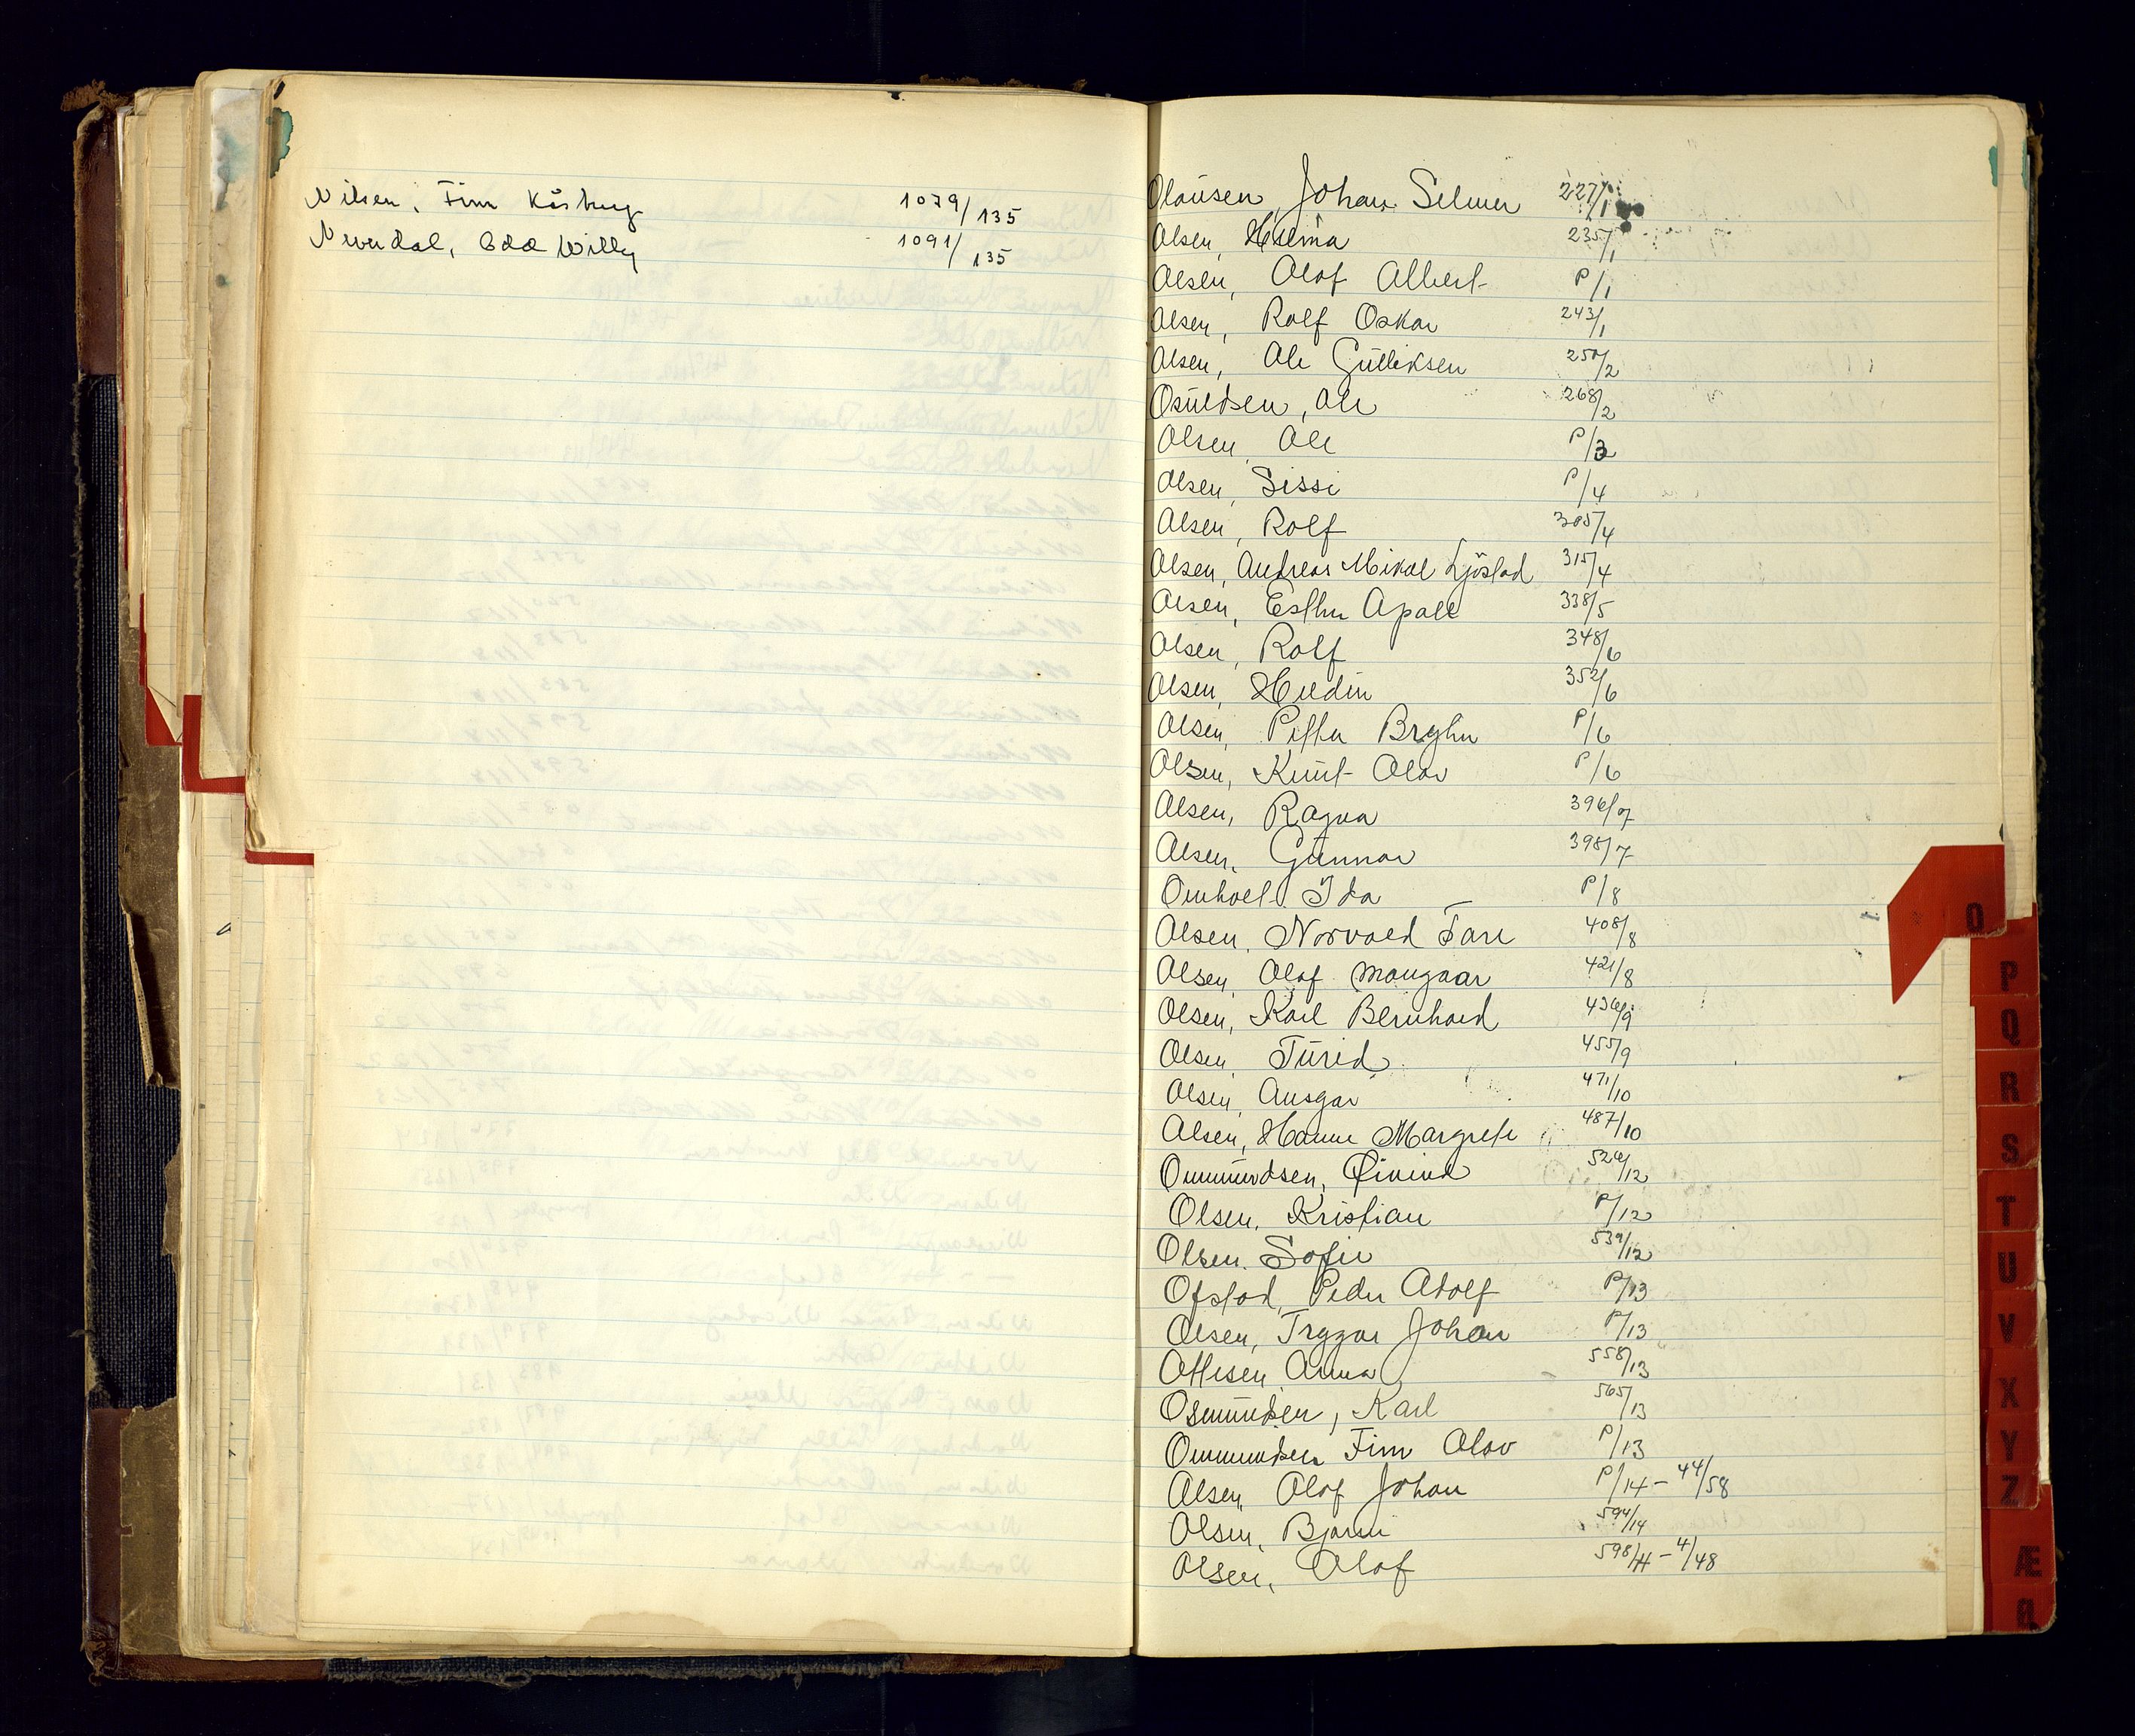 Nilsen, Finn Kåsborg 1079/135
Neverdal, Odd Willy 1091/135
Olausen, Johan Selmer 227/1
Olsen, Helma 235/1
Olsen, Olaf Albert P/1
Olsen, Rolf Oskar 243/1
Olsen, Ole Gulliksen 250/2
Osuldsen, Ole 268/2
Olsen, Ole P/3
Olsen, Sissi P/4
Olsen, Rolf 305/4
Olsen, Andreas Mikal Ljöstad 315/4
Olsen, Esther Apall 338/5
Olsen, Rolf 348/6
Olsen, Heldin 352/6
Olsen, Petter Bryhn P/6
Olsen, Knut Olav P/6
Olsen, Ragna 396/7
Olsen, Gunnar 398/7
Omholt Ida P/8
Olsen, Norvald Tare 408/8
Olsen, Olaf Mangaar 421/8
Olsen, Karl Bernhard 436/9
Olsen, Turid 455/9
Olsen, Ansgar 471/10
Olsen, Hanne Margrete 487/10
Ommundsen, Øivind 526/12
Olsen, Kristian P/12
Olsen, Sofie 539/12
Ofstad, Peder Adolf P/13
Olsen, Tryggar Johan P/13
Ottesen, Anna 558/13
Osmundsen, Karl 565/13
Ommundsen, Finn Olav P/13
Olsen, Olaf Johan P/14 - 44/58
Olsen, Bjarne 594/14
Olsen, Olaf 598/14 - 4/48
O
P
Q
R
S
T
U
V
X
Y
Z
Æ